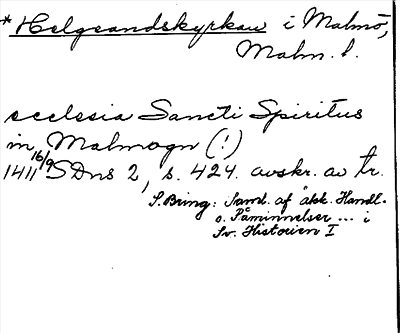 * Helgeandskyrkan i Malmö,
Malm. l.
ecclesia Sancti Spiritus
in Malmogn (!)
1411 16/9 SDns 2, s. 424. avskr. av tr.
S. Bring: Saml. af åsk. Handl.
o. Påminnelser ... i
Sv. Historien I